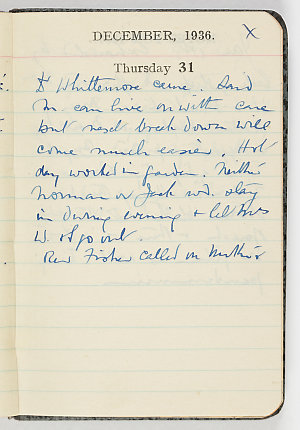 x
DECEMBER, 1936.
Thursday 31
Dr Whittemore came. Said
M. can live on with care
but next break down will
come much easier. Hot
day worked in garden. Neither
Norman or Jack wd. stay
in during evening & let Mrs
W. & I go out.
Rev Fisher called on Mother